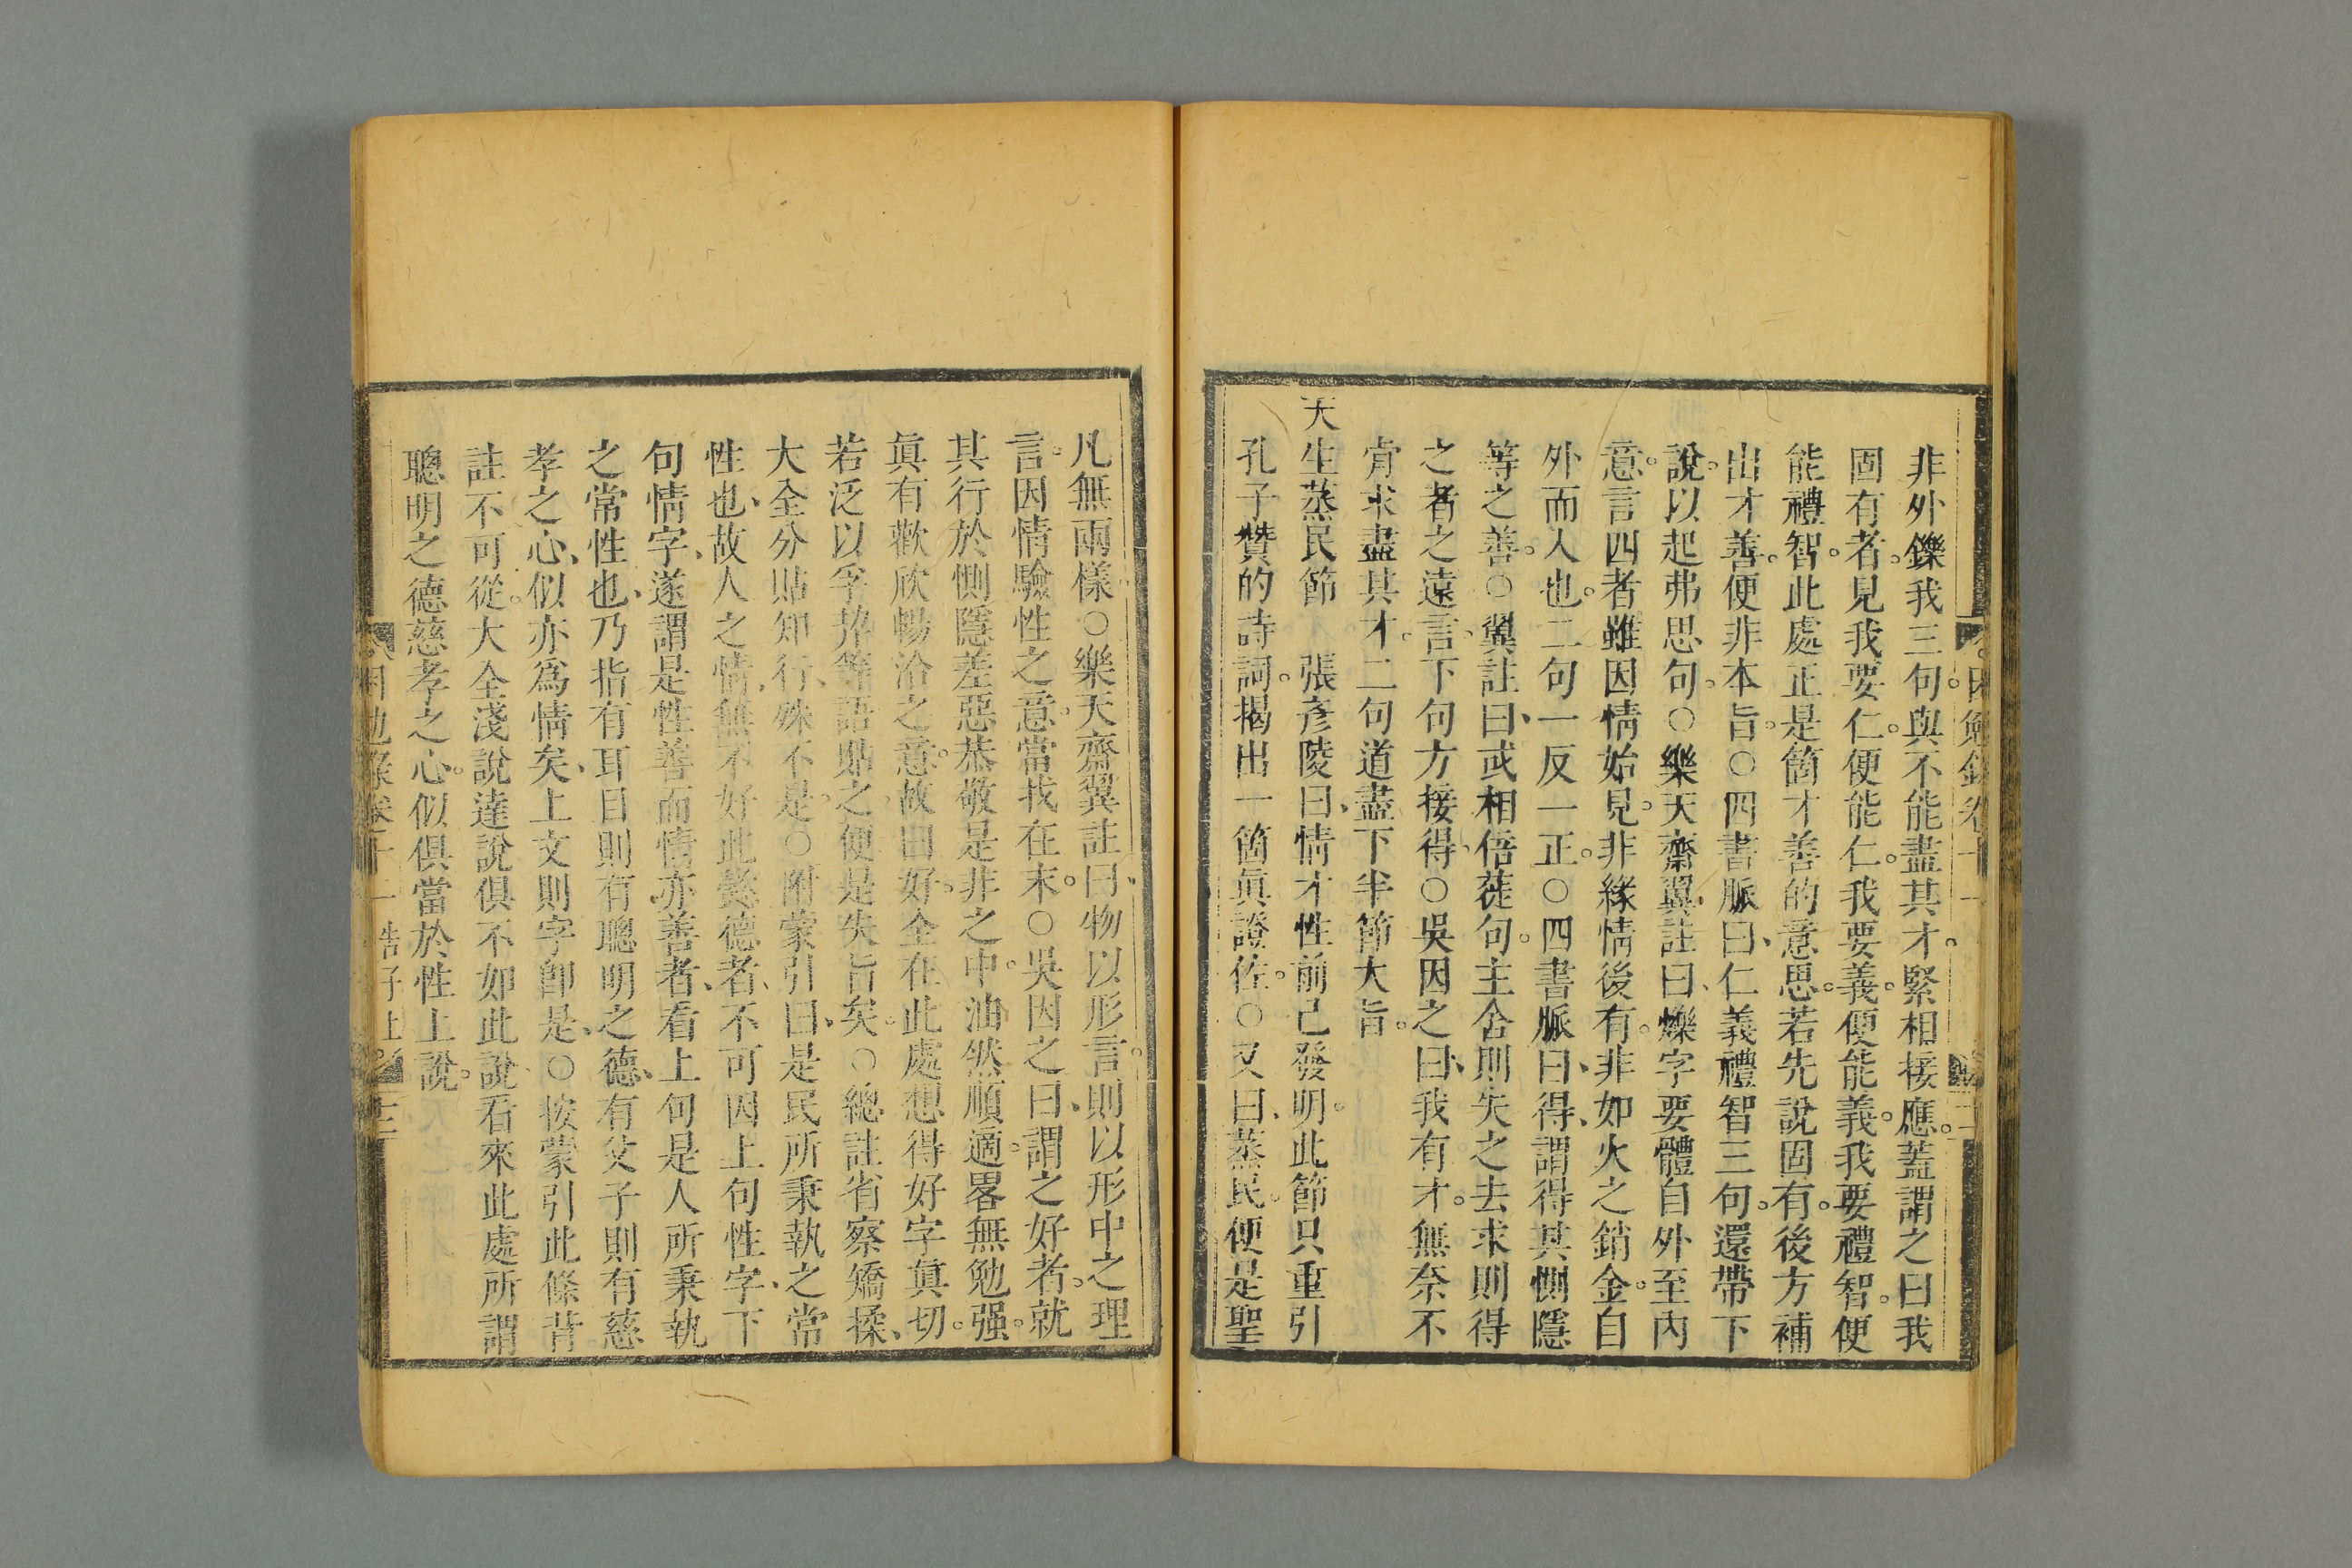 非外鑠我三句。與不能盡其才。緊相接應。蓋謂之曰我
固有者。見我要仁。便能仁。我要義。便能義。我要禮智。便
能禮智。此處正是箇才善的意思。若先說固有。後方補
出才善。便非本旨。○四書脈曰、仁義禮智三句。還帶下
說。以起弗思句。○樂天齋翼註曰、爍字要體自外至內
意。言四者雖因情始見。非緣情後有。非如火之銷金。自
外而入也。二句一反一正。○四書脈曰、得、謂得其惻隱
等之善。○翼註曰、或相倍蓰句。主舍則失之去求則得
之者之遠言。下句方接得。○吳因之曰、我有才。無奈不
肯求盡其才。二句道盡下半節大旨。
天生蒸民節 張彥陵曰、情才性前已發明。此節只重引
孔子贊的詩詞。揭出一箇眞證佐。○又曰、蒸民。便是聖
凡無兩樣。○樂天齋翼註曰、物以形言。則以形中之理
言。因情驗性之意。當找在末。○吳因之曰、謂之好者。就
其行於惻隱羞惡恭敬是非之中。油然順適。畧無勉强。
眞有歡欣暢洽之意。故曰好。全在此處想得好字眞切。
若泛以孚契等語貼之。便是失旨矣。○總註省察矯揉、
大全分貼知行、殊不是。○附蒙引曰、是民所秉執之常
性也、故人之情、無不好此懿德者、不可因上句性字、下
句情字、遂謂是性善而情亦善者、看上句是人所秉執
之常性也、乃指有耳目則有聰明之德、有父子則有慈
孝之心、似亦爲情矣、上文則字卽是、○按蒙引此條背
註不可從。大全淺說達說俱不如此說。看來此處所謂
聰明之德慈孝之心。似俱當於性上說。
困勉錄卷十一 告子上 十三